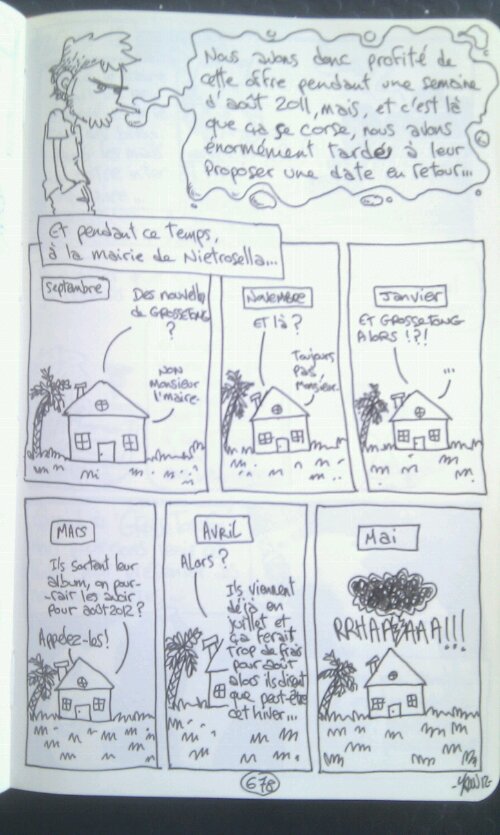 Nous avons donc profité de
cette offre pendant une semaine
d'août 2011, mais, et c'est là
que ça se corse, nous avons
énormément tardés à leur
proposer une date en retour...
Et pendant ce temps,
à la mairie de Nietrosella...
Septembre
Des nouvelles
de GROSSETONG
?
NON
Monsieur
l'maire.
Novembre
ET là ?
Toujours
pas,
Monsieur.
Janvier
ET GROSSETONG
ALORS !?!
...
MARS
Ils sortent leur
album, on pour-
-rait les avoir
pour août 2012 ?
Appelez-les !
AVRIL
Alors ?
Ils viennent
déjà en
juillet et
ça ferait
trop de frais
pour août
alors ils disent
que peut-être
cet hiver...
Mai
RRHAAAAAA!!!
678